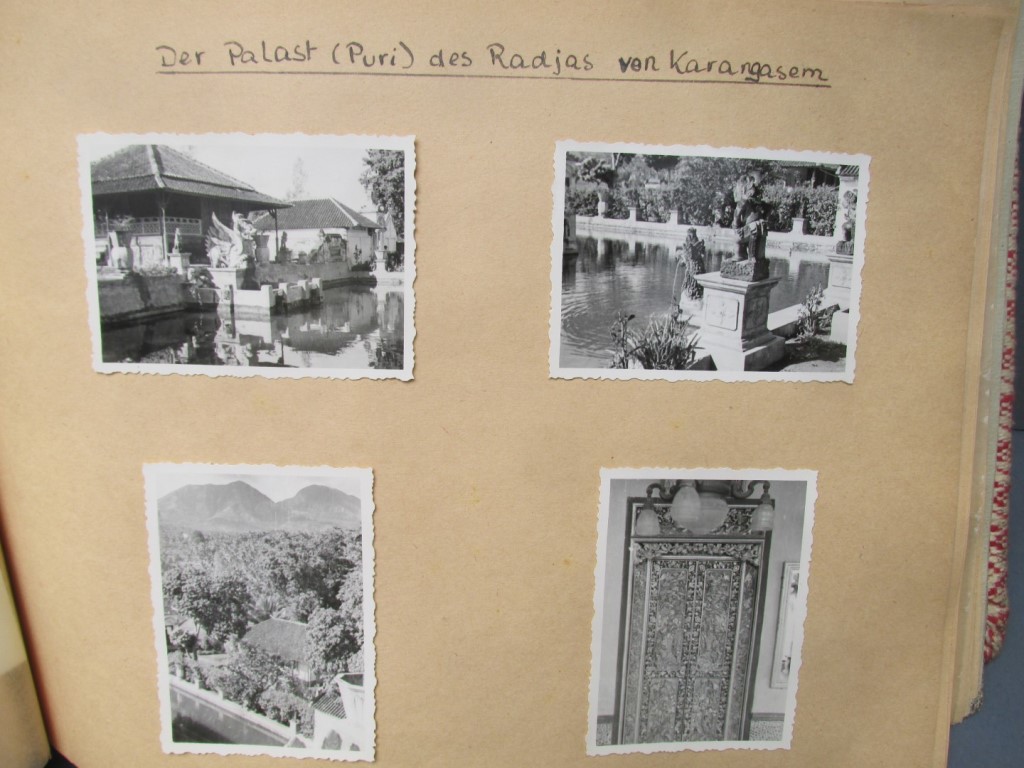 Der Palast (Puri) des Radjas von Karangasem